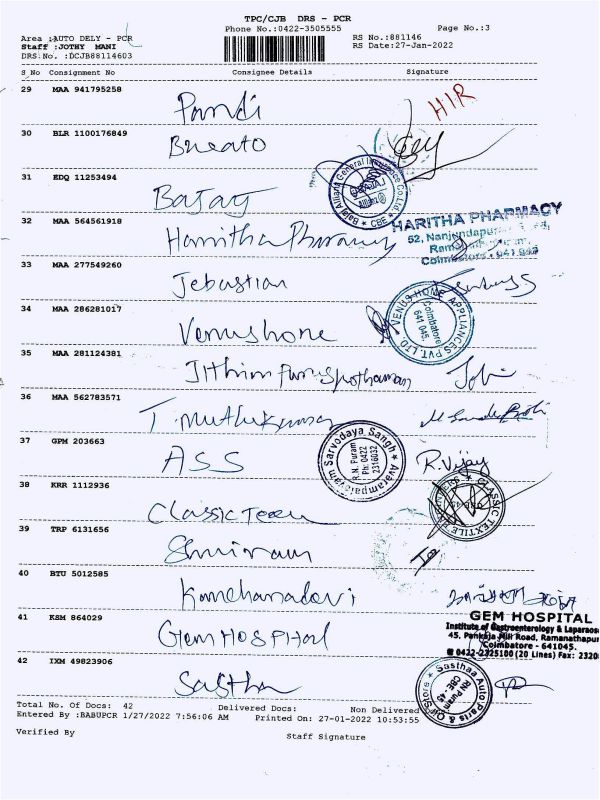 TPC/CJB DRS - PCR
Phone No.:0422-3505555 Page No.:3
Area :AUTO DELY - PCR RS No.:881146
Staff :JOTHY MANI RS Date:27-Jan-2022
DRS No. :DCJB88114603
S_No Consignment No Consignee Details Signature
29 MAA 941795258
Pandi HIR
30 BLR 1100176849
Bajaj Allianz General Insurance Co.Ltd * CBE *
31 EDQ 11253494
Bajaj
32 MAA 564561918
HARITHA PHARMACY
Haritha Pharmacy
52, Nanjundapuram
Coimbatore - 641 045
33 MAA 277549260
Jebastian
34 MAA 286281017
VENUS HOME APPLIANCES PVT. LTD. Coimbatore 641 045.
Venushome
35 MAA 281124381
Jithin Purushothaman Jobi
36 MAA 562783571
T. Muthukumar
37 GPM 203663
Sarvodaya Sangh * Avarampalayam * R.N. Puram Ph: 0422 2316032
ASS R.Vijay
38 KRR 1112936
CLASSIC TEXTILE
Classic Teen
39 TRP 6131656
Shriram
40 BTU 5012585
Kanchanadevi
41 KSM 864029
GEM HOSPITAL
Institute of Gastroenterology & Laparoscopic
Gem HOSPITAL
45, Pankaja Mill Road, Ramanathapuram
Coimbatore - 641045.
0422-2325100 (20 Lines) Fax: 2320
42 IXM 49823906
Sasthaa Auto Parts & Oil Store * RN Puram CBE - 45
Sastha
Total No. Of Docs: 42 Delivered Docs: Non Delivered
Entered By :BABUPCR 1/27/2022 7:56:06 AM Printed On: 27-01-2022 10:53:55
Verified By Staff Signature